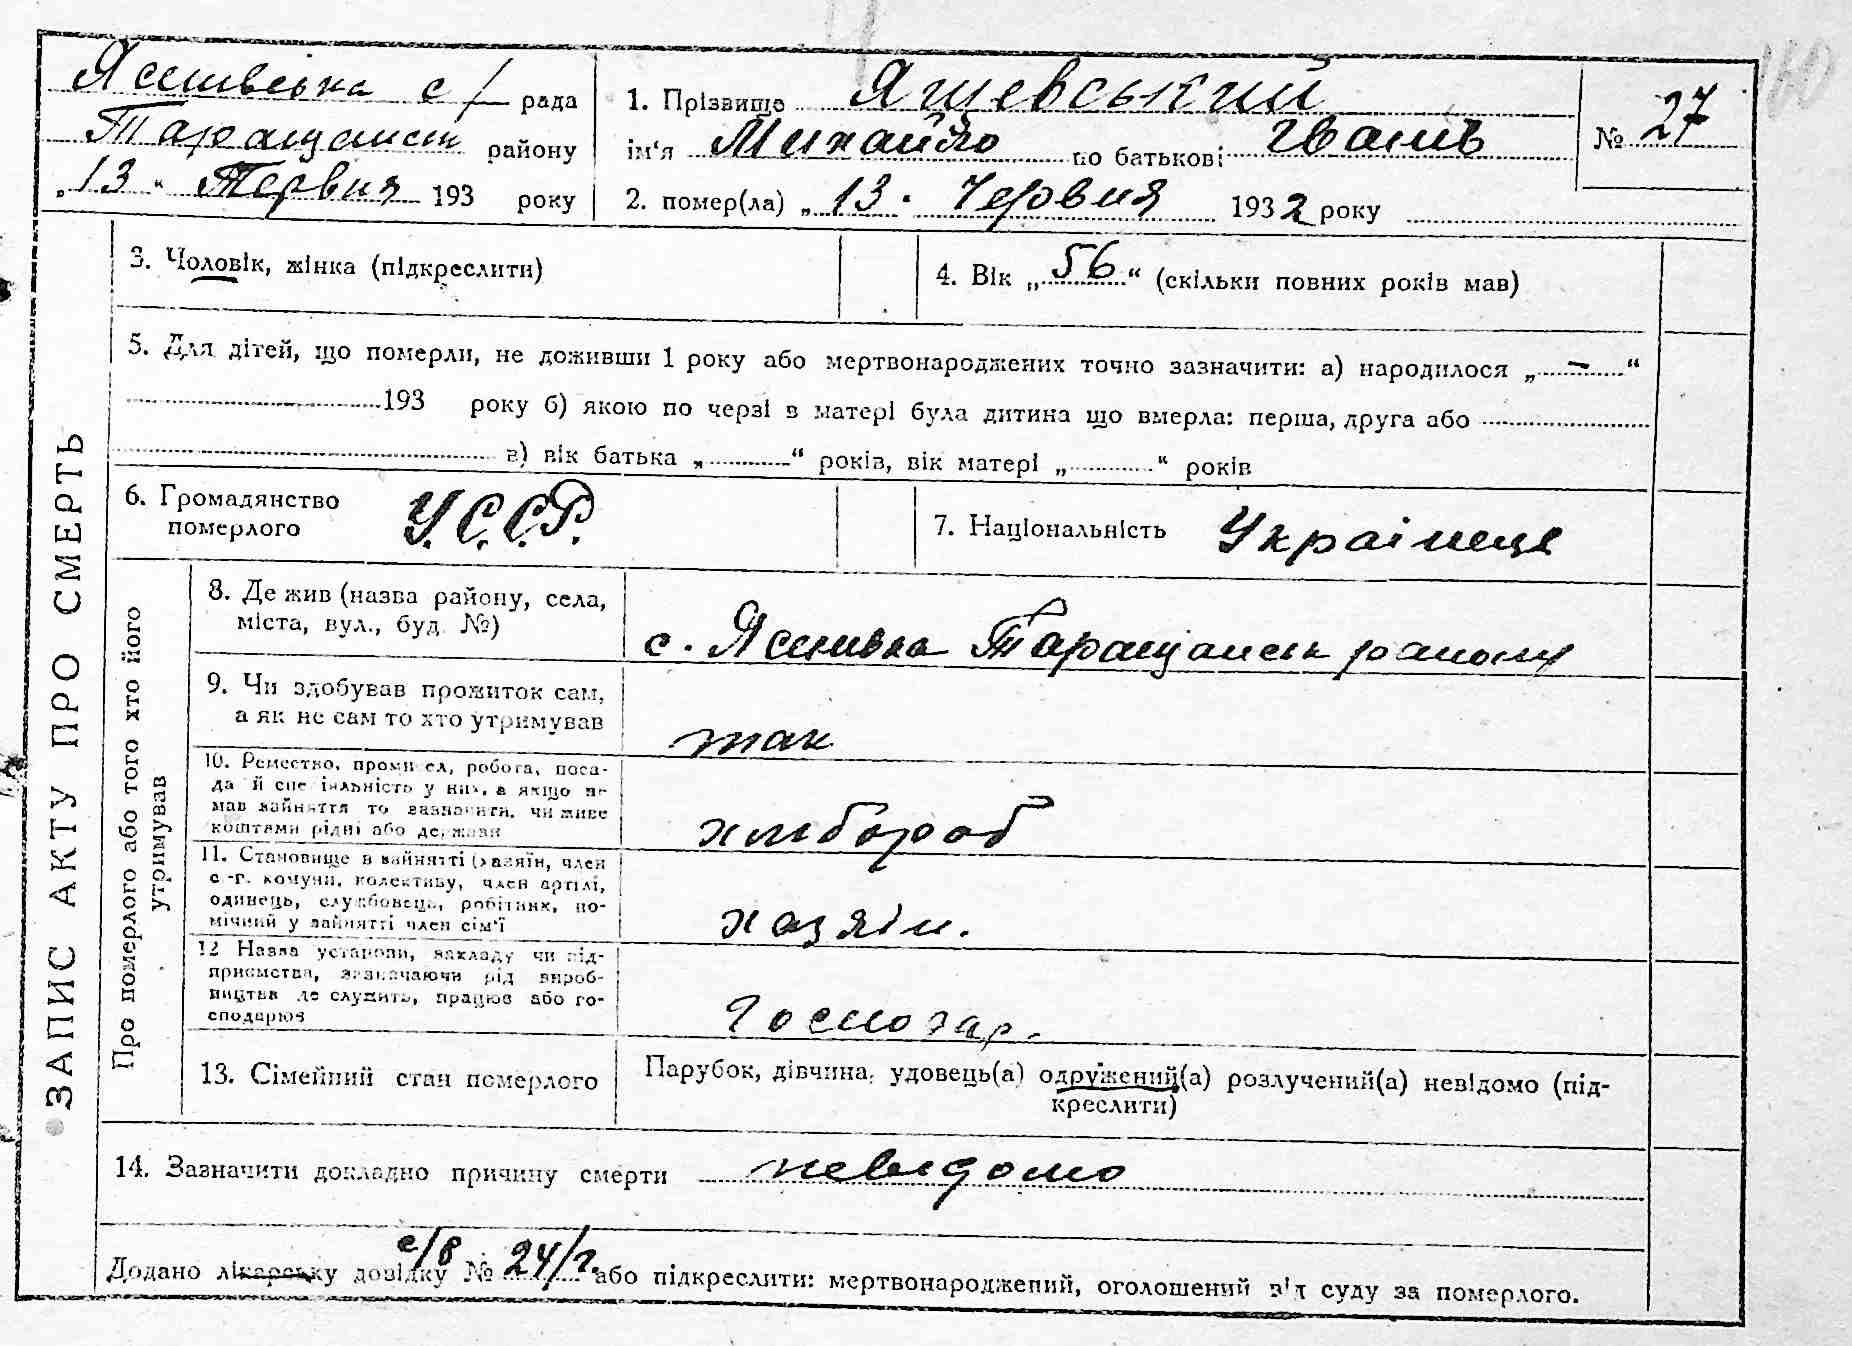 Ясинвська с/ рада
Таращанськ району
„13“ Червня 193 року
1. Прізвище Яшевський
ім'я Михайло по батькові Іванів
№ 27
2. помер(ла) „13. Червня 1932 року
ЗАПИС АКТУ ПРО СМЕРТЬ
3. Чоловік, жінка (підкреслити)
4. Вік „56“ (скільки повних років мав)
5. Для дітей, що померли, не доживши 1 року або мертвонароджених точно зазначити: а) народилося „—“
193 року б) якою по черзі в матері була дитина що вмерла: перша, друга або
в) вік батька „“ років, вік матері „“ років
6. Громадянство
померлого
У.С.С.Р.
7. Національність Українець
Про померлого або того хто його
утримував
8. Де жив (назва району, села,
міста, вул., буд. №)
с. Ясинівка Таращанськ району
9. Чи здобував прожиток сам,
а як не сам то хто утримував
так
10. Ремество, промисел, робота, поса-
да й спеціяльність у них, а якщо не
мав зайняття то зазначити, чи живе
коштами рідні або держави
хлібороб
11. Становище в зайнятті (хазяїн, член
с.-г. комуни, колективу, член артілі,
одинець, службовець, робітник, по-
мічний у зайнятті член сім'ї
хазяїн.
12 Назва установи, закладу чи під-
приємства, зазначаючи рід вироб-
ництва де служить, працює або го-
сподарює
Господар.
13. Сімейний стан померлого
Парубок, дівчина, удовець(а) одружений(а) розлучений(а) невідомо (під-
креслити)
14. Зазначити докладно причину смерти невідомо
с/в 24/г.
Додано лікарську довідку № або підкреслити: мертвонароджений, оголошений від суду за померлого.